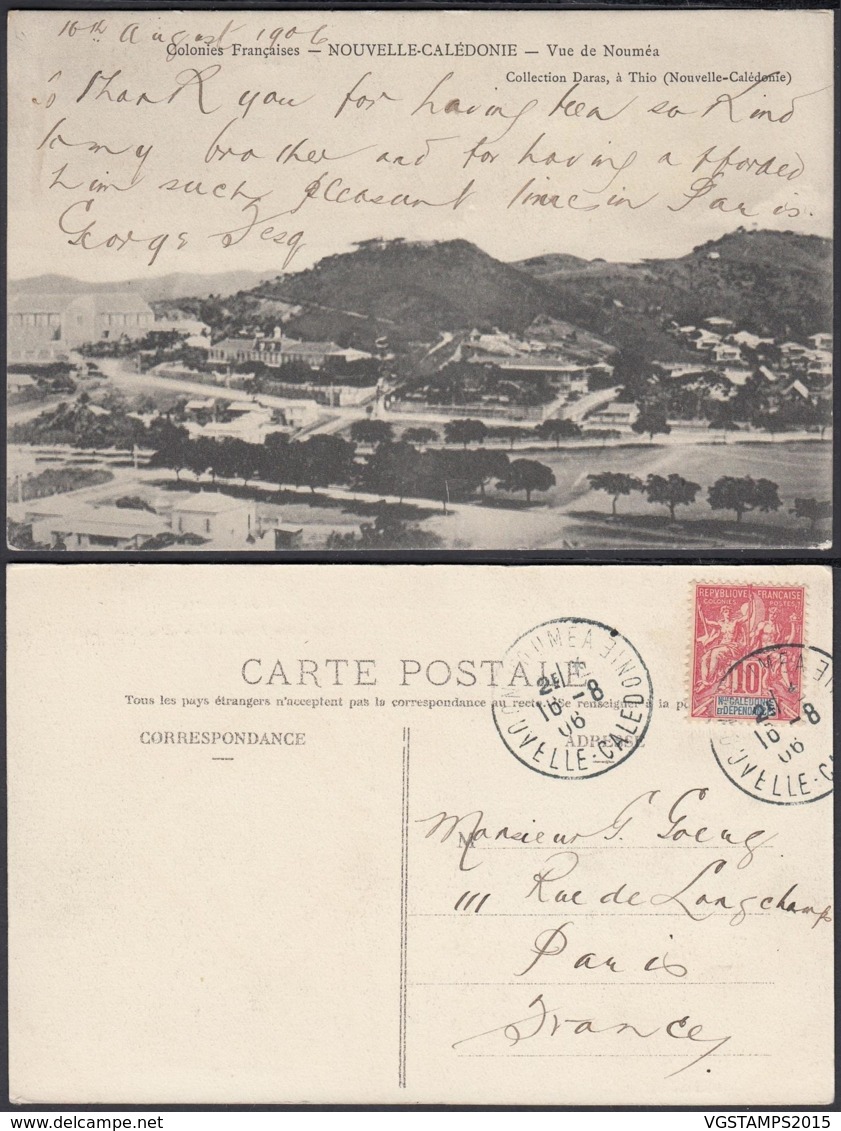 16th August 1906
Colonies Françaises — NOUVELLE-CALÉDONIE — Vue de Nouméa
Collection Daras, à Thio (Nouvelle-Calédonie)
to thank you for having been so kind
to my brother and for having afforded
him such pleasant time in Paris.
George
CARTE POSTALE
Tous les pays étrangers n'acceptent pas la correspondance au recto. Se renseigner à la
CORRESPONDANCE
ADRESSE
NOUMEA
2E
16 -8
06
NOUVELLE-CALEDONIE
REPUBLIQUE FRANÇAISE
COLONIES POSTES
10
Nlle CALEDONIE
ET DEPENDANCES
MEA
2E
16 -8
06
M
Monsieur G.
111 Rue de Longchamp
Paris
France
VGSTAMPS2015